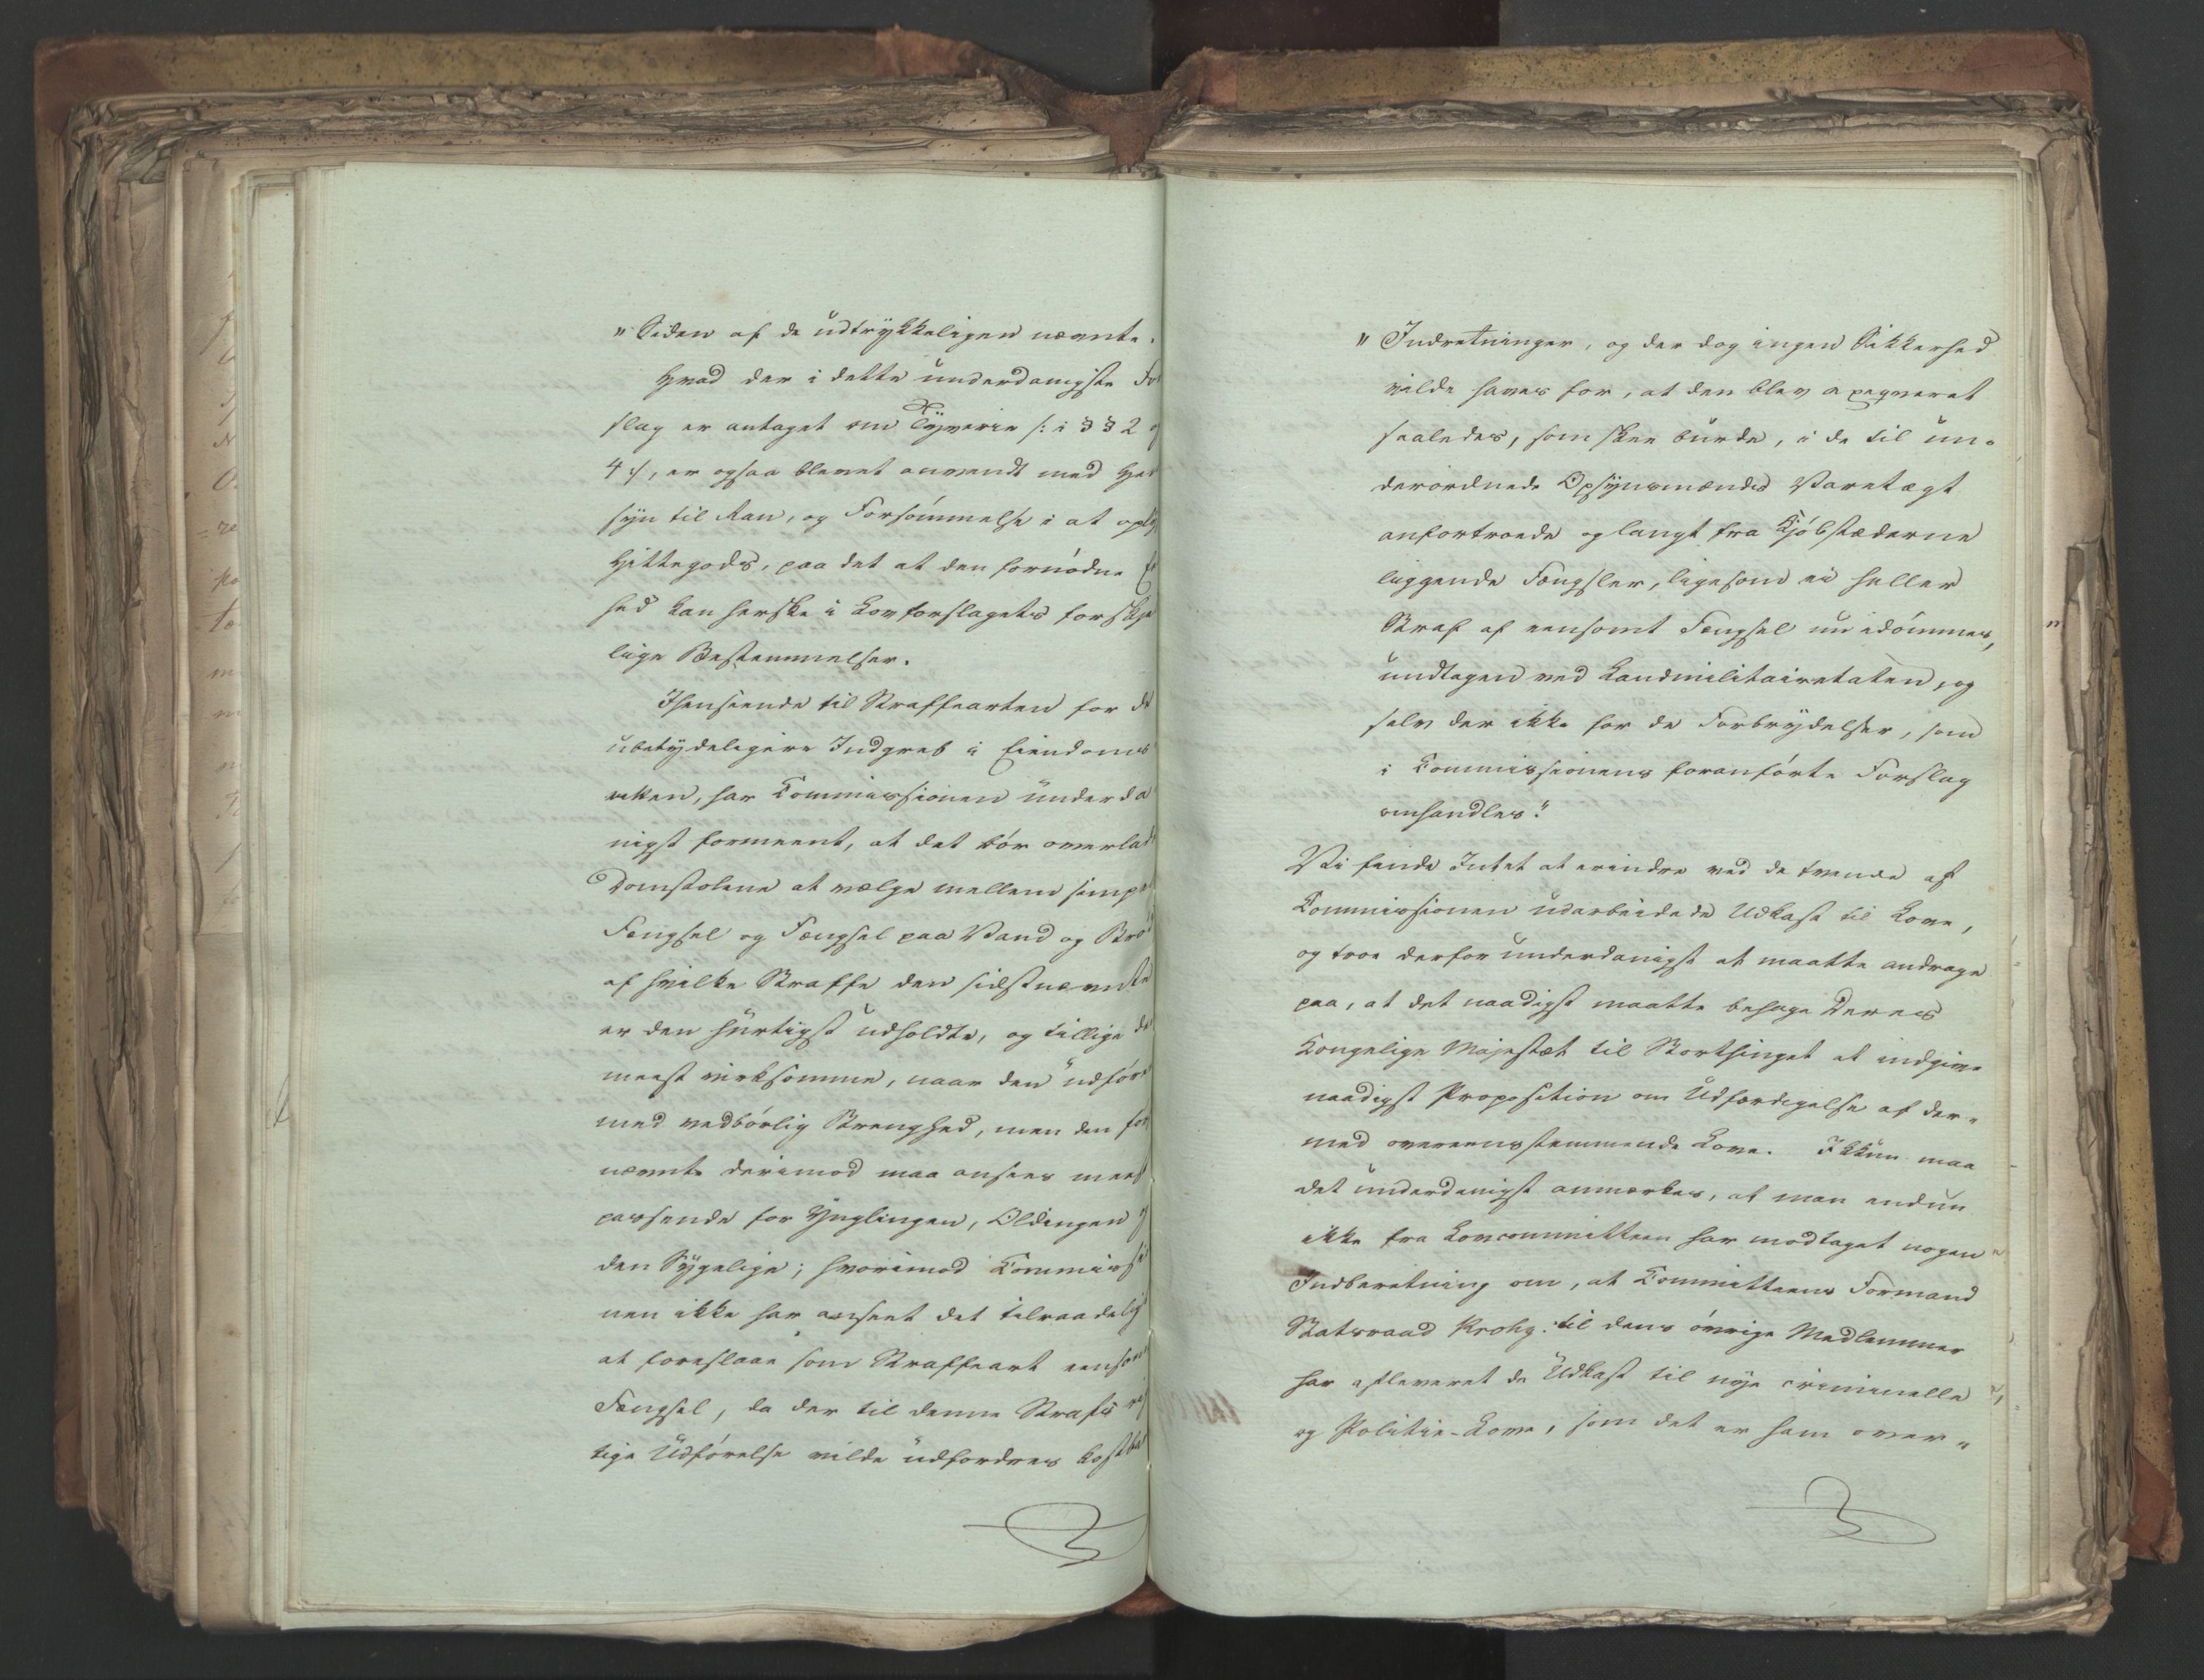 " Siden af de udtrykkeligen nævnte.
Hvad der i dette underdanigste For
slag er antaget om Tyverie /: i §§ 2 o
4 :/, er ogsaa blevet anvendt med Hen
syn til Ran, og Forsømmelse i at oply
Hittegods, paa det at den fornødne E
hed kan herske i Lovforslagets forskje
lige Bestemmelser.
Ihenseende til Straffearten for de
ubetydeligere Indgreb i Eiendoms
retten, har Commissionen underda
nigst formeent, at det bør overlade
Domstolene at vælge mellem simpelt
Fængsel og Fængsel paa Vand og Brød
af hvilke Straffe den sidstnævnte
er den hurtigst udholdte, og tillige de
meest virksomme, naar den udføres
med vedbørlig Strenghed, men den før
nævnte derimod maa ansees meest
passende for Ynglingen, Oldingen og
den Sygelige; hvorimod Commissio
nen ikke har anseet det tilraadeligt
at foreslaae som Straffeart eensomt
Fængsel, da der til denne Strafs rig
tige Udførelse vilde udfordres kostbar
" Indretninger, og der dog ingen Sikkerhed
vilde haves for, at den blev exeqveret
saaledes, som skee burde, i de til un-
derordnede Opsynsmænds Varetægt
anfortroede og langt fra Kjøbstæderne
liggende Fængsler, ligesom ei heller
Straf af eensomt Fængsel nu idømmes,
undtagen ved Landmilitairetaten, og
selv der ikke for de Forbrydelser, som
i Commissionens foranførte Forslag
omhandles."
Vi finde Intet at erindre ved de tvende af
Commissionen udarbeidede Udkast til Love,
og troe derfor underdanigst at maatte andrage
paa, at det naadigst maatte behage Deres
Kongelige Majestæt til Storthinget at indgive
naadigst Proposition om Udfærdigelse af der-
med overeensstemmende Love. Ikkun maa
det underdanigst anmærkes, at man endnu
ikke fra Lovcommitteen har modtaget nogen
Indberetning om, at Committeens Formand
Statsraad Krohg til dens øvrige Medlemmer
har afleveret de Udkast til nye criminelle
og Politie-Love, som det er ham over-